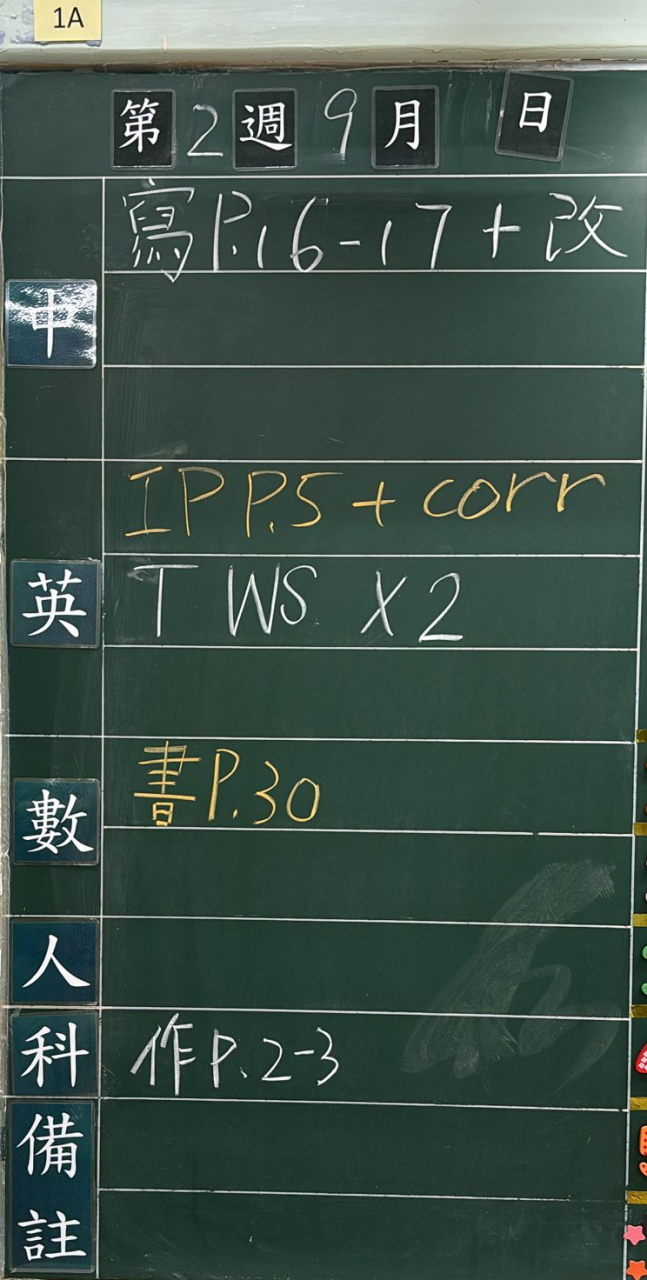 1A
第2週9月 日
寫P.16-17+改
中
IP P.5+corr
英 T WS X2
數 書P.30
人
科 作P.2-3
備
註